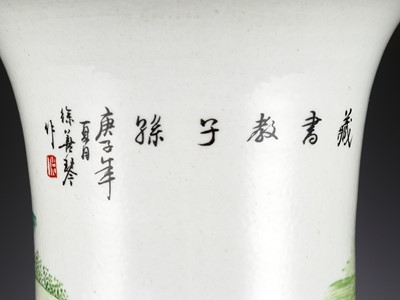 藏書教子孫
庚子年
夏月
徐善琴
作